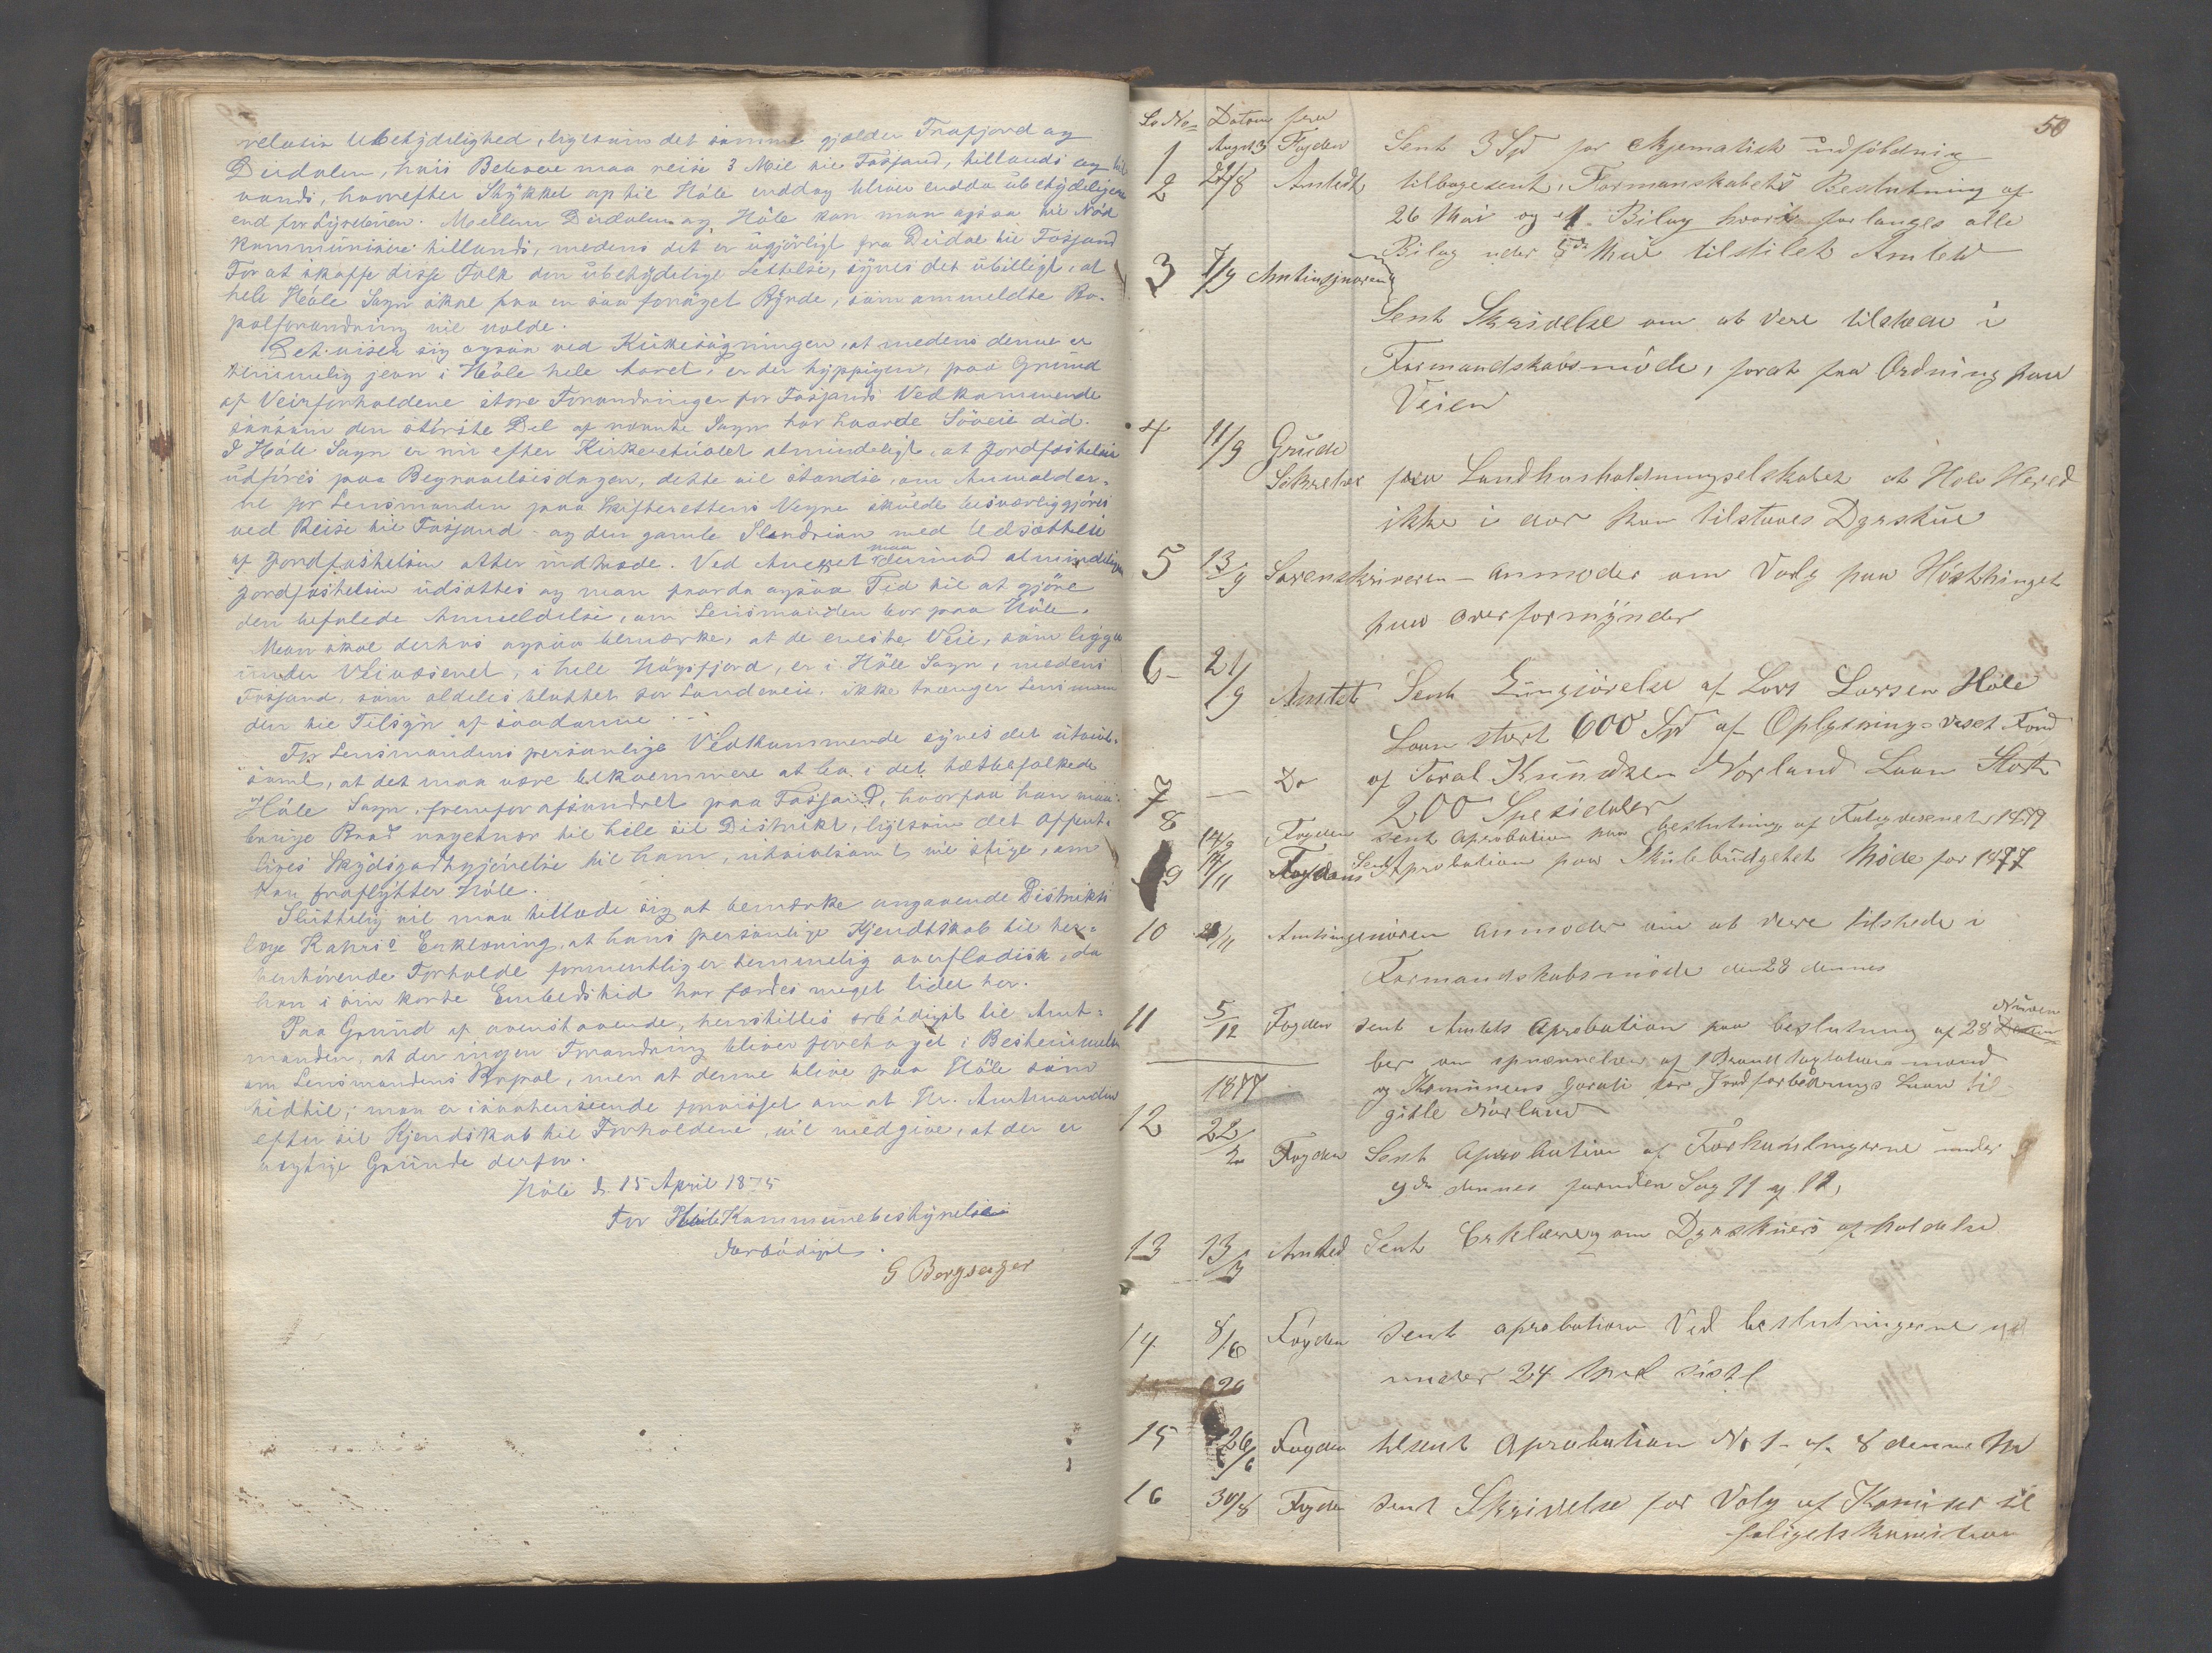 relativ Ubetydelighed, ligesom det samme gjælder Frafjord og
Dirdalen, hvis Beboere maa reise 3 Mil til Fosjand, tillands og til
vands, hvorefter Stykket op til Höle endog bliver endda ubetydeligere
end for Lyseböen. Mellem Dirdalen og Höle kan man ogsaa til Nöd
kommunisere tillands, medens det er ugjörligt fra Dirdal til Fosjand
For at skaffe disse Folk den ubetydelige Lettelse, synes det ubilligt, at
hele Höle Sogn skal faa en saa foröget Byrde, som ommeldte Bo-
pælforandring vil volde.
Det viser sig ogsaa ved Kirkesögningen, at medens denne er
temmelig jevn i Höle hele Aaret, er der hyppigen, paa Grund
af Veirforholdene store Forandringer for Fosjands Vedkommende
saasom den störste Del af nævnte Sogn har haarde Söveie did.
I Höle Sogn er nu efter Kirkeritualet almindeligt, at Jordfæstelsen
udföres paa Begravelsesdagen, dette vil standse, om Anmelder-
ne for Lensmanden paa Skifterettens Vegne skulde besværliggjöres
ved Reise til Fosjand og den gamle Slendrian med Udsættelse
af Jordfæstelsen atter indtræde. Ved Anexet maa derimod almindeligen
Jordfæstelsen udsættes og man faar da ogsaa Tid til at gjöre
den befalede Anmeldelse, om Lensmanden bor paa Höle.
Man skal derhos ogsaa bemærke, at de eneste Veie, som ligge
under Veivæsenet, i hele Högsfjord, er i Höle Sogn, medens
Fosjand, som aldeles blottet for Landeveie, ikke trænger Lensman
den til Tilsyn af saadanne.
For Lensmandens personlige Vedkommende synes det utvivl-
somt, at det maa være bekvemmere at bo i det tætbefolkede
Höle Sogn, fremfor afsondret paa Fosjand, hvorfra han maa
bruge Baad nogetnær til hele sit Distrikt, ligesom det Offent-
liges Skydsgodtgjörelse til ham, utvivlsomt vil stige, om
han fraflytter Höle.
Sluttelig vil man tillade sig at bemærke angaaende Distrikts
læge Kahrs's Erklæring, at hans personlige Kjendtskab til her-
henhörende Forholde formentlig er temmelig overfladisk, da
han i sin korte Embedstid har færdes meget lidet her.
Paa Grund af ovenstaaende, henstilles ærbödigst til Amt-
manden, at der ingen Forandring bliver foretaget i Bestemmelsen
om Lensmandens Bopæl, men at denne blive paa Höle som
hidtil; man er i saahenseende forvisset om at Hr. Amtmanden
efter sit Kjendskab til Forholdene, vil medgive, at der er
vegtige Grunde derfor.
Höle d. 15 April 1875
For Höle Kommunebestyrelse
Ærbödigst
G Bergsager
50
Lö No Datum fra
1 August 3 Fogden Sent 3 Spd for Skjematisk udfyldning
2 28/8 Amtedt tilbagesent Formanskabets Beslutning af
26 Mai og 1 Bilag hvori forlanges alle
Bilag under 5te Mai tilstilet Amtet
3 7/9 Amtinsjnören
Sent Skrivelse om at vere tilstede i
Formandskabsmöde, forat faa Ordning paa
Veien
4 11/9 Grude
Sekretær fra Landhusholdningselskabet at Höle Hered
ikke i aar kan tilstaaes Dyrskue
5 13/9 Sorenskriveren - anmoder om Valg paa Hösthinget
paa overformynder
6 21/9 Amtet Sent Lars Larsen Höle
Laan stort 600 Spd af Oplysnings-veset Fond
7 — Do af Knudsen Nörland Laan Stort
200 Spesidaler
8 14/9 Fogden sent Aprobation paa beslutning af Fatigvesenet 1877
9 14/11 Fogden Sent Aprobation paa Skulebudgetet Möde for 1877
10 21/11 Amtingeniören anmoder om at vere tilstede i
Formandskabsmöde den 28 dennes
11 5/12 Fogden sent Amtets Aprobation paa beslutning af 28 Novem
ber om af 1 Brand mand
1877 og Komunens Garati for Jordforbedrings Laan til
gitle Nörland
12 22/2 Fogden Sent Aprobation af Forhandlingerne under
9de dennes foruden Sag 11 og 12,
13 13/3 Amted Sent Erklæring om Dyrskuers afholdelse
14 8/6 Fogden Sent aprobation Ved beslutningerne
20 under 24 April sistl
15 26/6 Fogden tilsent Aprobation No 1 af 8 denne M
16 30/8 Fogden Sent Skrivelse for Valg af til